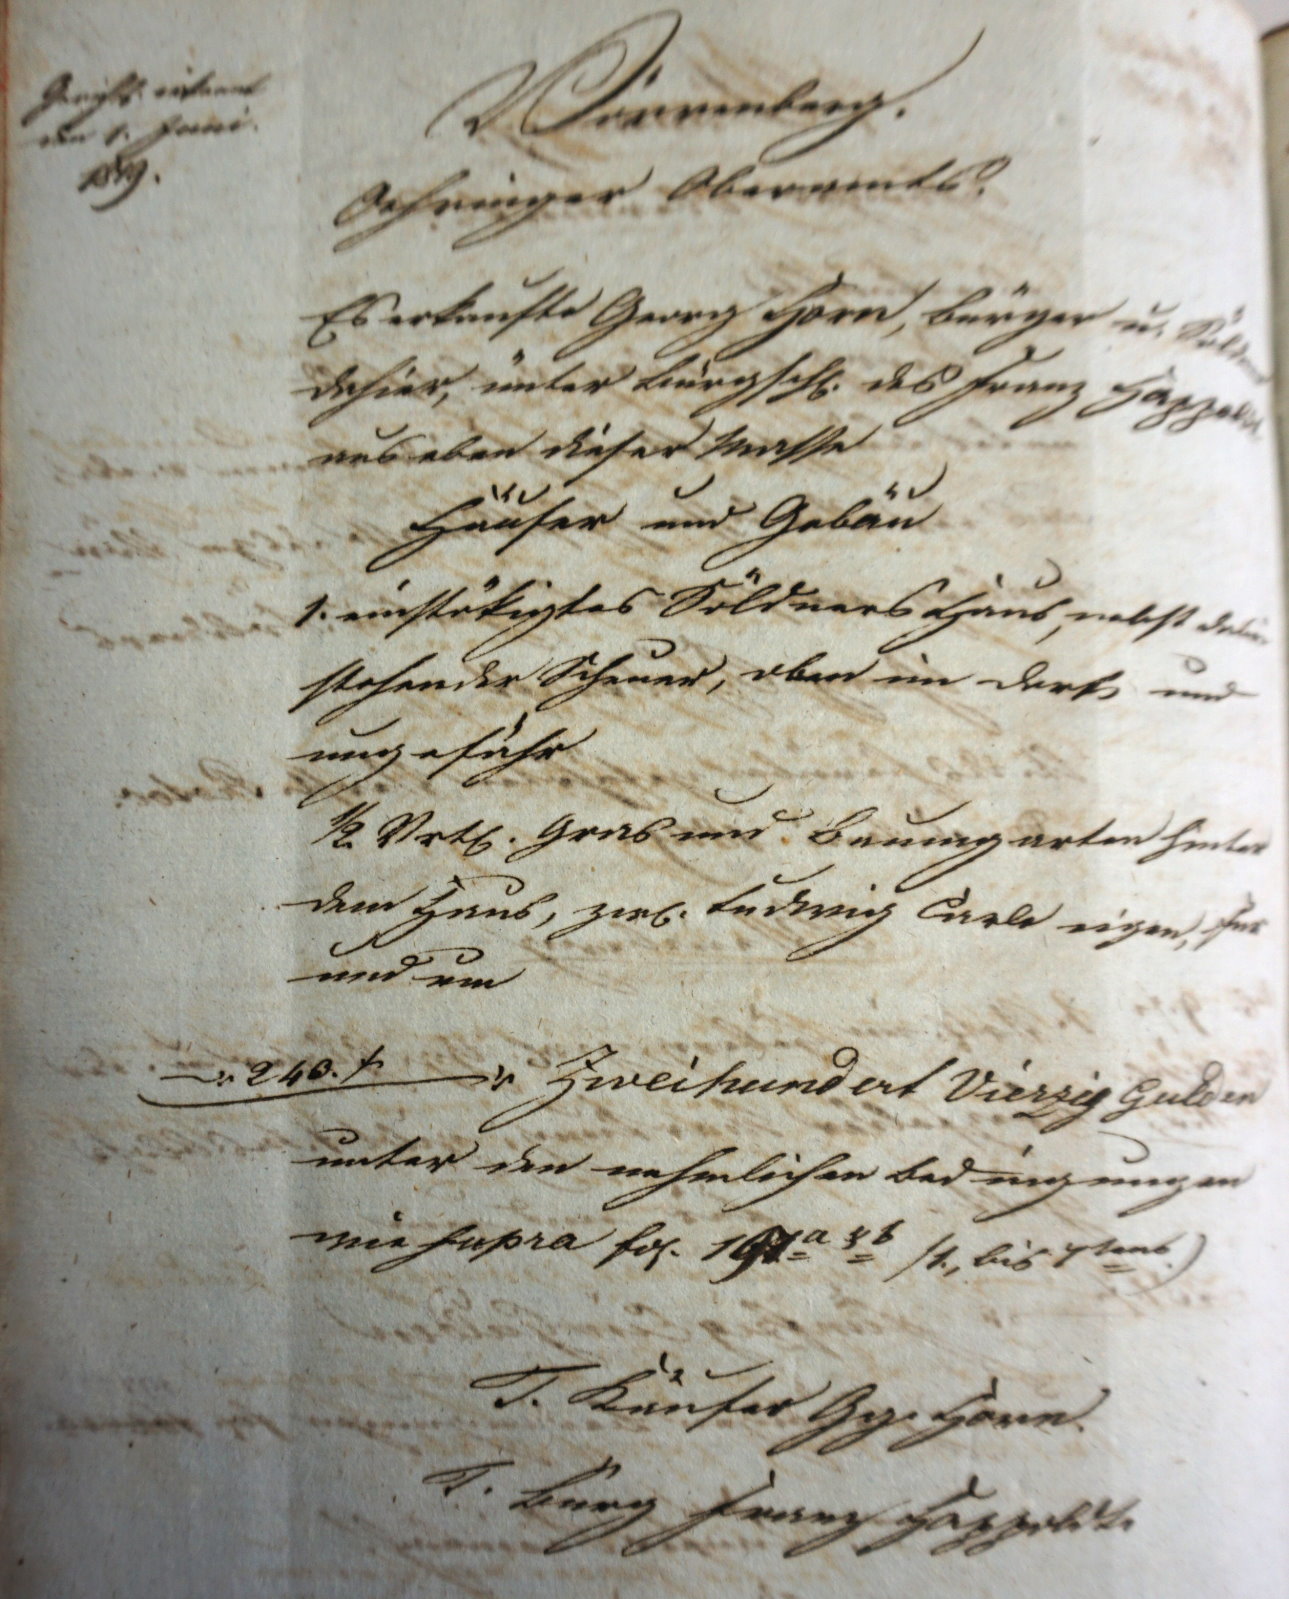 Gerichtl. erkannt
den 1. Juni.
1819.
Dörrenberg.
Oehringer Oberamts.
Es erkaufte Georg Horn, Bürger u. Söldner
dahier, unter Bürgsch. des Franz Happoldt
aus eben dieser Masse
Häuser und Gebäu
1. einstökigtes Söldners Haus, nebst dabei
stehender Scheuer, oben im Dorf, und
ungefähr
1/2 Vrtl. Gras und Baumgarten hinter
dem Haus, Ludwig Carle eigen, für
und um
240. f. Zweihundert Vierzig Gulden
unter den nehmlichen Bedingungen
wie supra fol. a & b /1., bis 7tens.)
T. Käufer Gg. Horn.
T. Bürg Franz Happoldt.